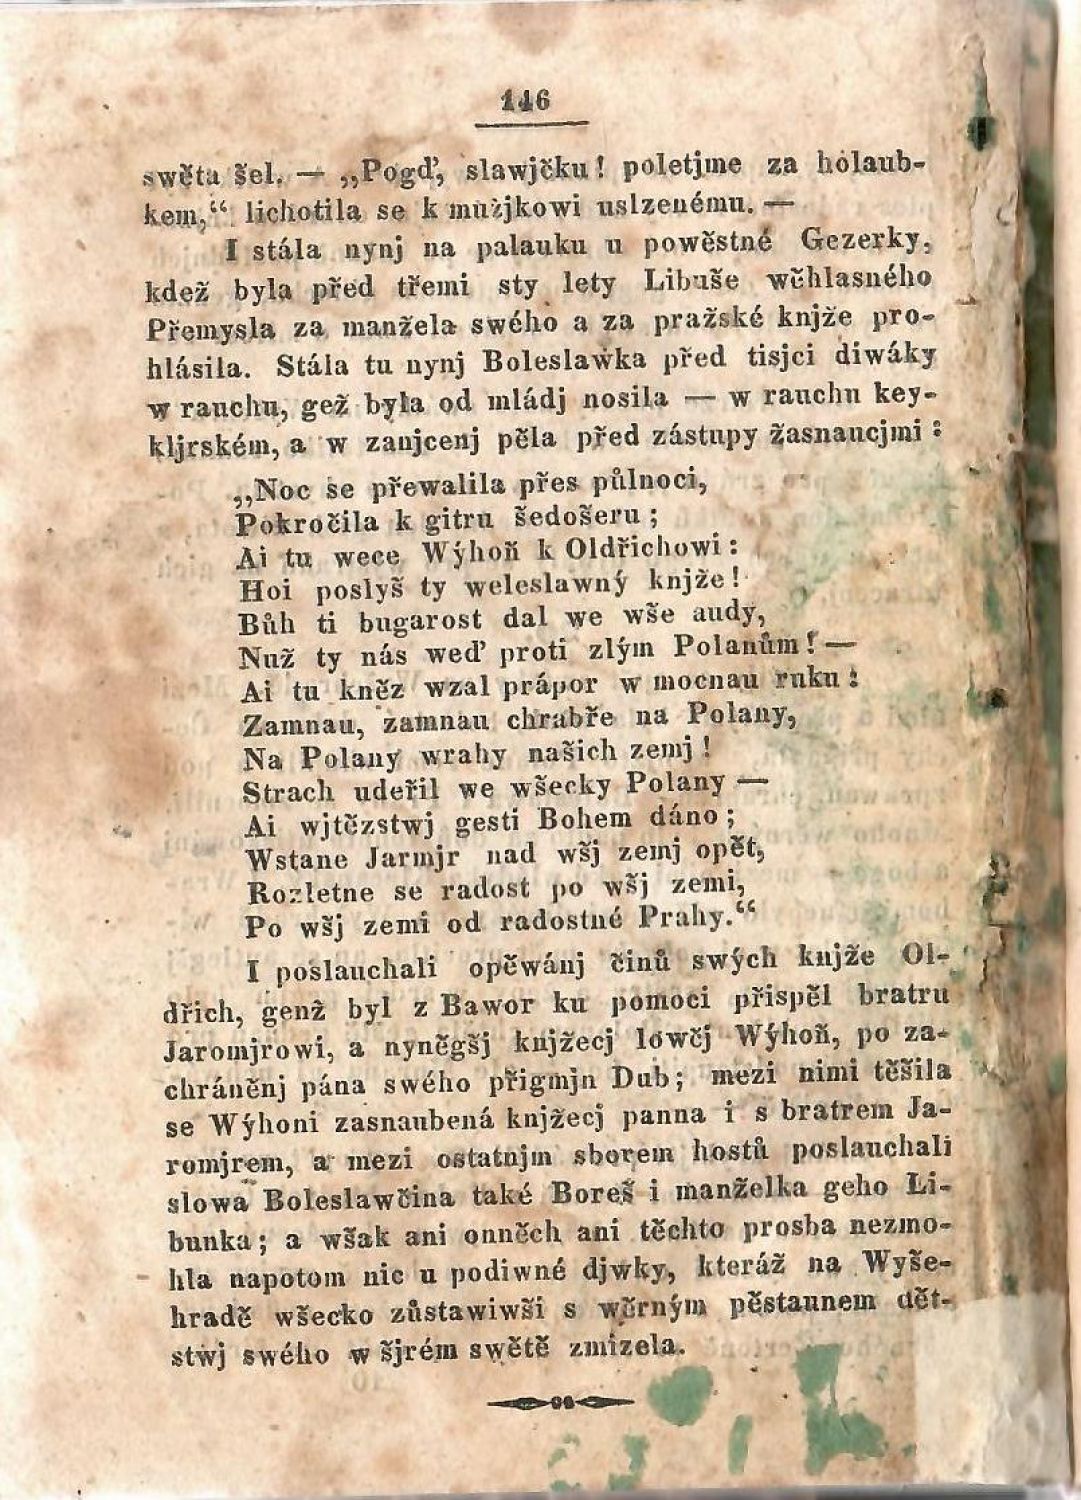 146
swěta šel. — „Pogď, slawjčku! poletjme za holaub-
kem,“ lichotila se k mužjkowi uslzenému. —
I stála nynj na palauku u powěstné Gezerky,
kdež byla před třemi sty lety Libuše wěhlasného
Přemysla za manžela swého a za pražské knjže pro-
hlásila. Stála tu nynj Boleslawka před tisjci diwáky
w rauchu, gež byla od mládj nosila — w rauchu key-
kljrském, a w zanjcenj pěla před zástupy žasnaucjmi:
„Noc se přewalila přes půlnoci,
Pokročila k gitru šedošeru;
Ai tu wece Wýhoň k Oldřichowi:
Hoi poslyš ty weleslawný knjže!
Bůh ti bugarost dal we wše audy,
Nuž ty nás weď proti zlým Polanům! —
Ai tu kněz wzal prápor w mocnau ruku:
Zamnau, zamnau chrabře na Polany,
Na Polany wrahy našich zemj!
Strach udeřil we wšecky Polany —
Ai wjtězstwj gesti Bohem dáno;
Wstane Jarmjr nad wšj zemj opět,
Rozletne se radost po wšj zemi,
Po wšj zemi od radostné Prahy.“
I poslauchali opěwánj činů swých knjže Ol-
dřich, genž byl z Bawor ku pomoci přispěl bratru
Jaromjrowi, a nyněgšj knjžecj lowčj Wýhoň, po za-
chráněnj pána swého přigmjn Dub; mezi nimi těšila
se Wýhoni zasnaubená knjžecj panna i s bratrem Ja-
romjrem, a mezi ostatnjm sborem hostů poslauchali
slowa Boleslawčina také Boreš i manželka geho Li-
bunka; a wšak ani onněch ani těchto prosba nezmo-
hla napotom nic u podiwné djwky, kteráž na Wyše-
hradě wšecko zůstawiwši s wěrným pěstaunem dět-
stwj swého w šjrém swětě zmizela.